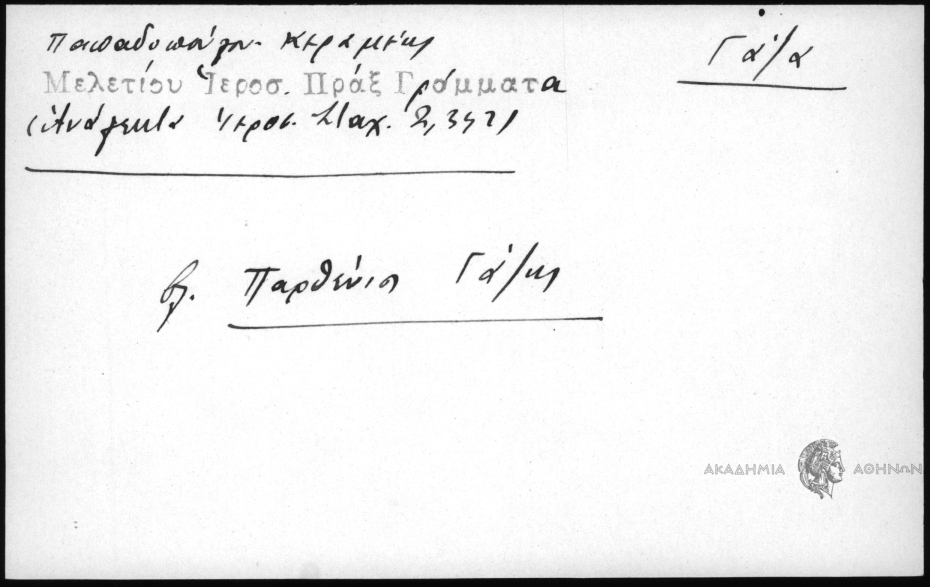 Παπαδοπούλου Κεραμέως
Γάζα
Μελετίου Ἱεροσ. Πράξ Γράμματα
(Ἀνάλεκτα Ἱεροσ. Σταχ. 2,
βλ. Παρθένιος Γάζης
ΑΚΑΔΗΜΙΑ ΑΘΗΝΩΝ